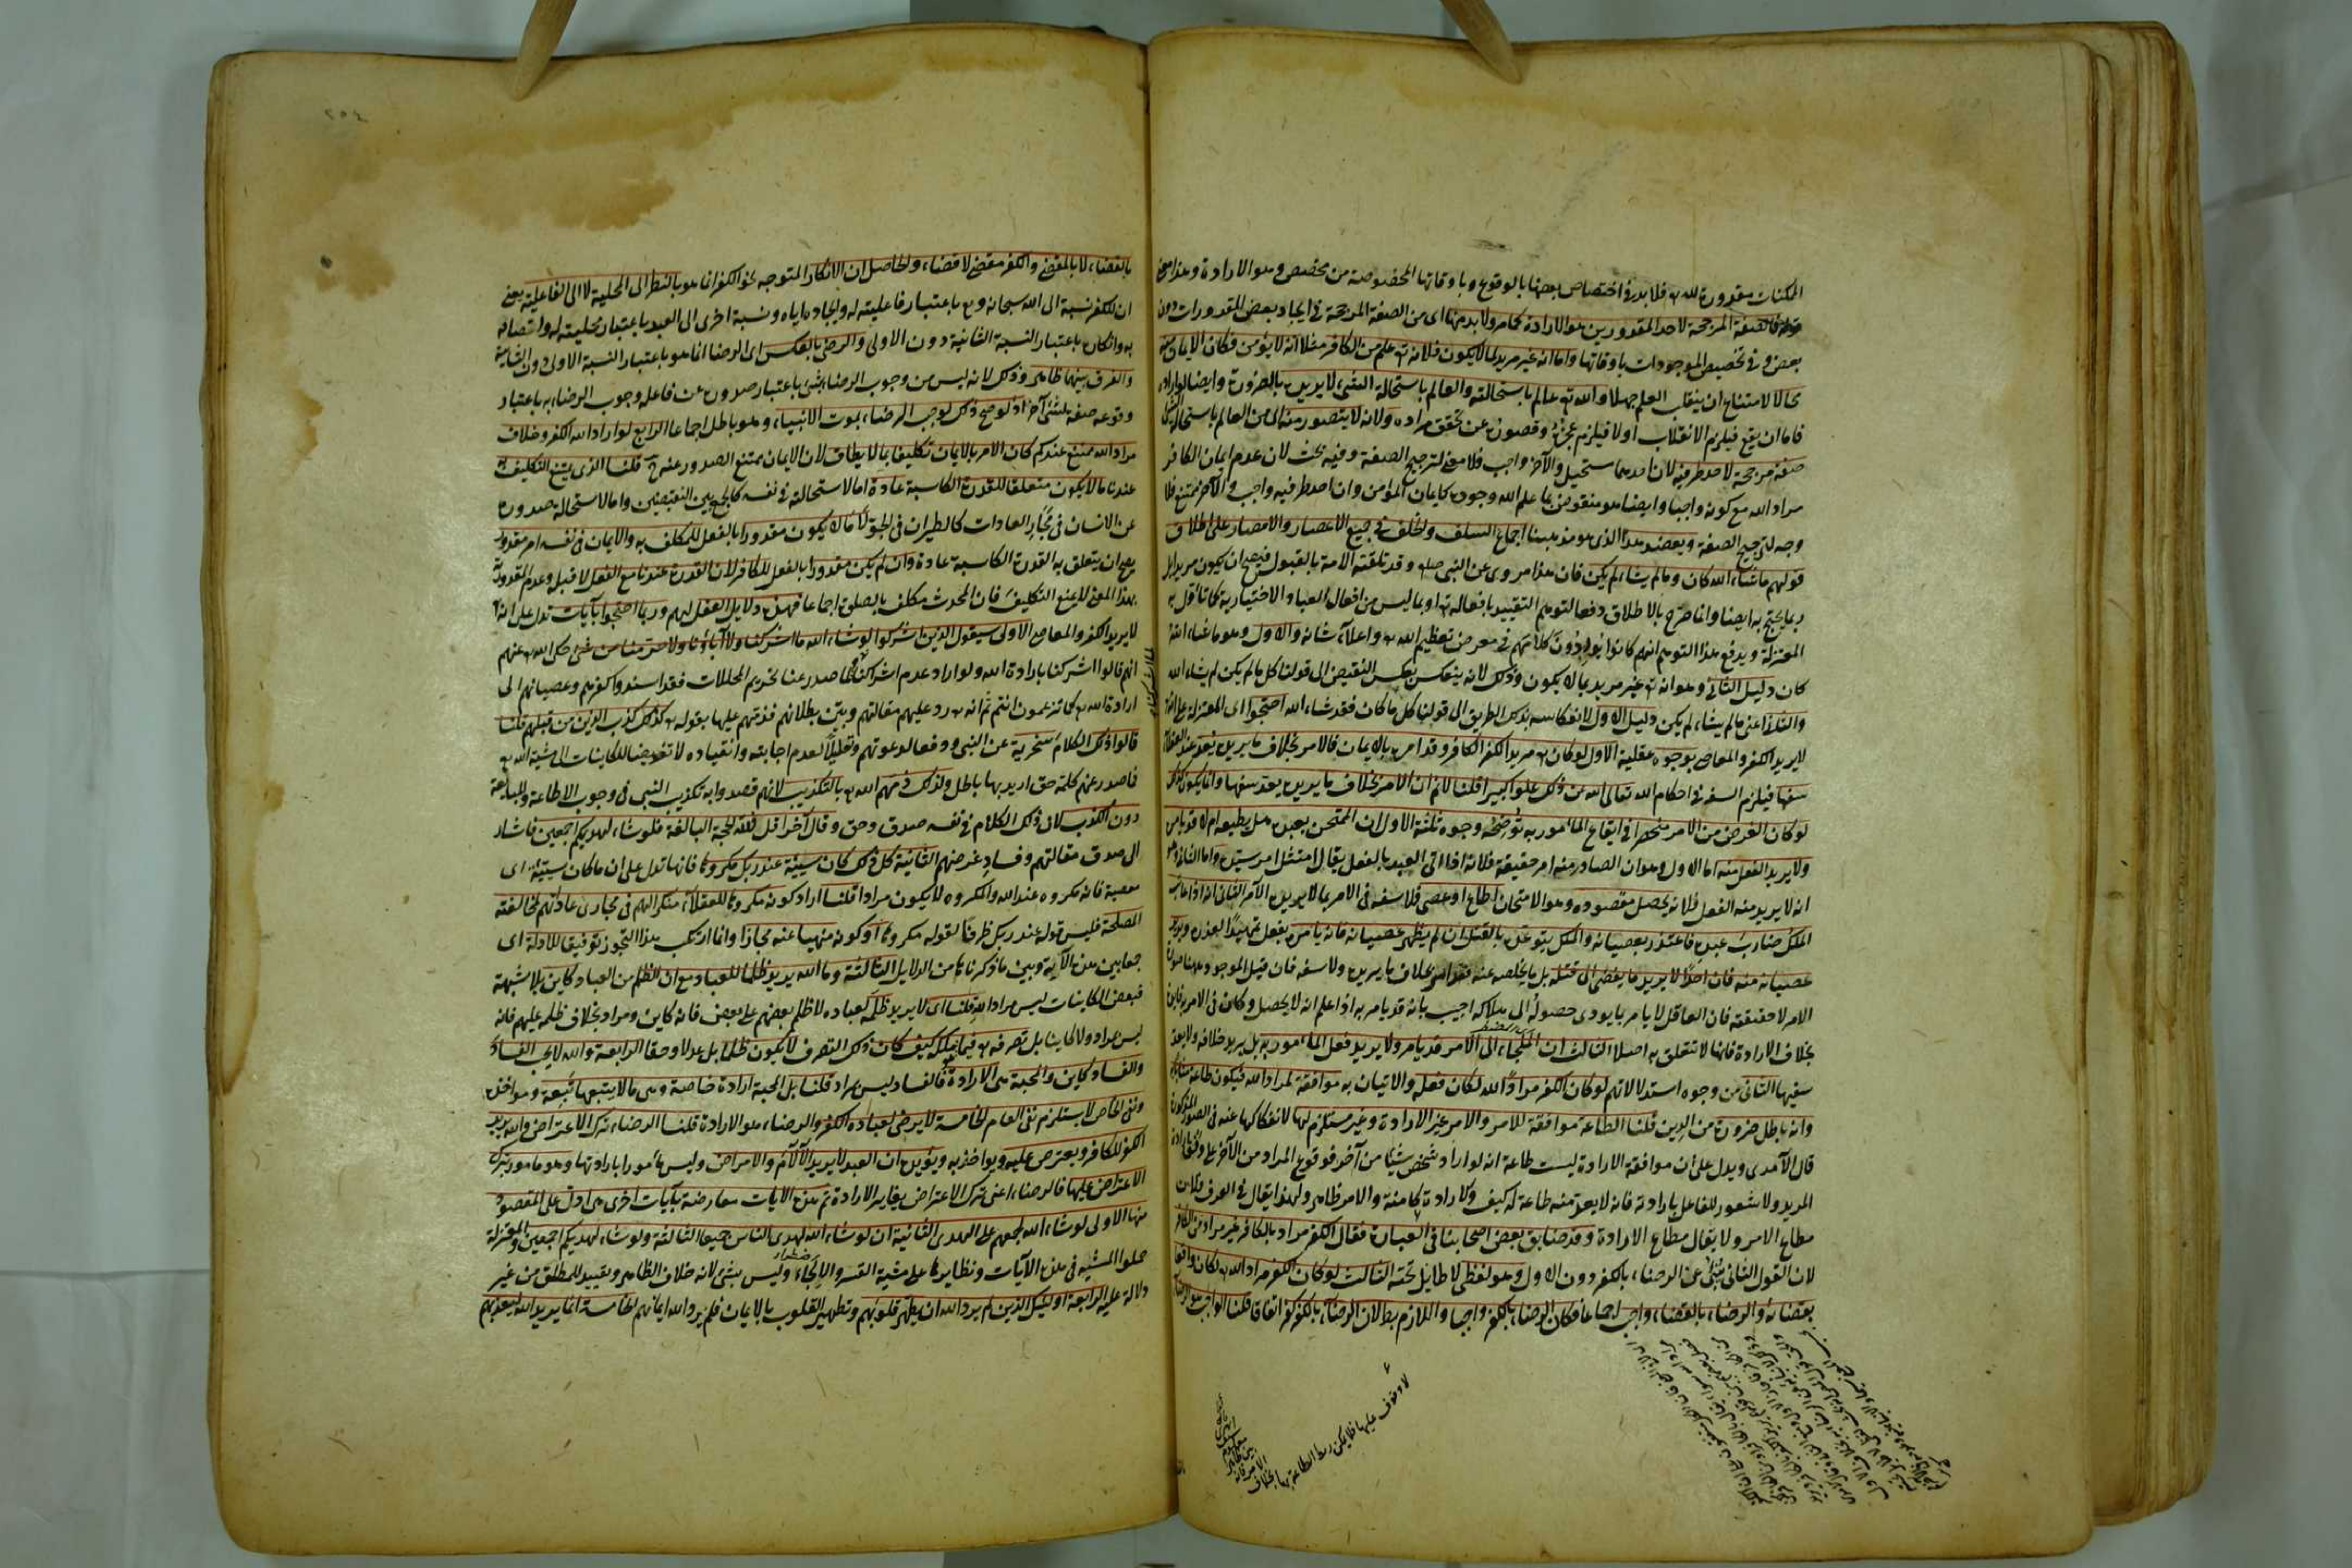 الممكنات مقدورة لله تع فلا بد في اختصاص بعضها بالوقوع وباوقاتها المخصوصة من مخصص وهو الارادة وهذا معنى
فالصفة المرجحة لاحد المقدورين هو الارادة كما مر ولا بد منها اى من الصفة المرجحة في ايجاد بعض المقدورات دون
بعض وفي تخصيص الموجودات باوقاتها واما انه غير مريد لما لا يكون فلانه تع علم من الكافر مثلا انه لا يؤمن فكان الايمان منه
محالا لامتناع ان ينقلب العلم جهلا والله تع عالم باستحالته والعالم باستحالة الشى لا يريده بالضرورة وايضا لو اراده
فاما ان يقع فيلزم الانقلاب اولا فيلزم عجزه وقصوره عن تحقق مراده ولانه لا يتصور منه اى من العالم باستحالة الشى
صفة مرجحة لاحد طرفيه لان احدهما مستحيل والآخر واجب فلا معنى لترجيح الصفة وفيه بحث لان عدم ايمان الكافر
مراد الله مع كونه واجبا وايضا هو منقوض بما علم الله وجوده كايمان المؤمن وان احد طرفيه واجب والآخر ممتنع فلا
وجه لترجيح الصفة ويعضد هذا الذى هو مذهبنا اجماع السلف والخلف في جميع الاعصار والامصار على اطلاق
قولهم ما شاء الله كان وما لم يشاء لم يكن فان هذا مروى عن النبى صلعم وقد تلقته الامة بالقبول فيصح ان يكون مريدا
ربما يحتج به ايضا وانما صرح بالاطلاق دفعا لتوهم التقييد بافعاله تع او بما ليس من افعال العباد الاختيارية كما تأول به
المعتزلة ويدفع هذا التوهم انهم كانوا يوردون كلامهم في معرض تعظيم الله تع واعلاء شانه والاول وهو ما شاء الله
كان دليل الثانى وهو انه تع غير مريد بما لا يكون وذلك لانه ينعكس بعكس النقيض الى قولنا كل ما لم يكن لم يشاء الله
والثانى اعنى ما لم يشاء لم يكن دليل الاول لانعكاسه بذلك الطريق الى قولنا كل ما كان فقد شاء الله احتجوا اى المعتزلة على انه
لا يريد الكفر والمعاصى بوجوه عقلية الاول لو كان تع مريدا لكفر الكافر وقد امره بالايمان فالامر بخلاف ما يريده يعد عند العقلاء
سفها فيلزم السفه في احكام الله تعالى الله عن ذلك علوا كبيرا قلنا لا نم ان الامر بخلاف ما يريده يعد سفها وانما يكون كذلك
لو كان الغرض من الامر منحصرا في ايقاع المأمور به توضيحه وجوه ثلثة الاول ان الممتحن بعبده هل يطيعه ام لا قد يامره
ولا يريد الفعل منه اما الاول وهو ان الصادر منه امر حقيقة فلانه اذا اتى العبد بالفعل يقال امتثل امر سيده واما الثانى وهو
انه لا يريد منه الفعل فلانه يحصل مقصوده وهو الامتحان اطاع او عصى فلا سفه في الامر بما لا يريده الآمر الثانى انه اذا عاتب
الملك ضارب عبده فاعتذر بعصيانه والملك يتوعده بالقتل ان لم يظهر عصيانه فانه يامره بفعل تمهيدا لعذره ويريد
عصيانه منه فان احدا لا يريد ما يفضى الى قتله بل ما يخلصه عنه فقد امر بخلاف ما يريده ولا سفه فان قيل الموجود ههنا صورة
الامر لا حقيقته فان العاقل لا يامر بما يودى حصوله الى هلاكه اجيب بانه قد يامر به اذا علم انه لا يحصل وكان في الامر به فايدة
بخلاف الارادة فانها لا تتعلق به اصلا الثالث ان الملجاء الى الامر قد يامر ولا يريد فعل المامور به بل يريد خلافه ولا يعد
سفيها الثانى من وجوه استدلالاتهم لو كان الكفر مرادا لله لكان فعله والاتيان به موافقة لمراد الله فيكون طاعة مثابا به
وانه باطل ضرورة من الدين قلنا الطاعة موافقة للامر والامر غير الارادة وغير مستلزم لها لانفكاكها عنه في الصور المذكورة
قال الآمدى ويدل على ان موافقة الارادة ليست طاعة انه لو اراد شخص شيئا من آخر فوقع المراد من الآخر على وفق ارادة
المريد ولا شعور للفاعل بارادته فانه لا يعد منه طاعة له كيف والارادة كامنة والامر ظاهر ولهذا يقال في العرف فلان
مطاع الامر ولا يقال مطاع الارادة وقد ضايق بعض اصحابنا في العبارة فقال الكفر مراد بالكافر غير مراد من الكافر
لان القول الثانى ينبئ عن الرضاء بالكفر دون الاول وهو لفظى لا طايل تحته الثالث لو كان الكفر مراد الله تع لكان واقعا
بقضائه والرضاء بالقضاء واجب اجماعا فكان الرضاء بالكفر واجبا واللازم بطلان الرضاء بالكفر كفر اتفاقا قلنا الواجب هو الرضا
لا وقوف عليها فلا يمكن ربط الطاعة بها بخلاف
الامر فانه
بالقضاء لا بالمقضى والكفر مقضى لا قضاء والحاصل ان الانكار المتوجه نحو الكفر انما هو بالنظر الى المحلية لا الى الفاعلية يعنى
ان للكفر نسبة الى الله سبحانه وتع باعتبار فاعليته له وايجاده اياه ونسبة اخرى الى العبد باعتبار محليته له واتصافه
به وانكاره باعتبار النسبة الثانية دون الاولى والرضى بالعكس اى الرضا انما هو باعتبار النسبة الاولى دون الثانية
والفرق بينهما ظاهر وذلك لانه ليس من وجوب الرضاء بشى باعتبار صدوره عن فاعله وجوب الرضاء به باعتبار
وقوعه صفة لشئ آخر اذ لو صح ذلك لوجب الرضاء بموت الانبياء وهو باطل اجماعا الرابع لو اراد الله الكفر وخلاف
مراد الله ممتنع عندكم كان الامر بالايمان تكليفا بما لا يطاق لان الايمان ممتنع الصدور عنه ح قلنا الذى يمتنع التكليف به
عندنا ما لا يكون متعلقا للقدرة الكاسبة عادة اما لاستحالته في نفسه كالجمع بين النقيضين واما لاستحالة صدوره
عن الانسان في مجارى العادات كالطيران في الجو لا ما لا يكون مقدورا بالفعل للمكلف به والايمان في نفسه امر مقدور
يصح ان يتعلق به القدرة الكاسبة عادة وان لم يكن مقدورا بالفعل للكافر لان القدرة عندنا مع الفعل لا قبله وعدم المقدورية
بهذا المعنى لا يمنع التكليف فان المحدث مكلف بالصلوة اجماعا فهذه دلايل العقل لهم وربما احتجوا بآيات تدل على انه تع
لا يريد الكفر والمعاصى الاولى سيقول الذين اشركوا لو شاء الله ما اشركنا ولا آباؤنا ولا حرمنا من شئ حكى الله تع عنهم
انهم قالوا اشركنا بارادة الله ولو اراد عدم اشراكنا لما صدر عنا تحريم المحللات فقد اسندوا كفرهم وعصيانهم الى
ارادة الله تع كما تزعمون انتم ثم انه تع رد عليهم مقالتهم وبين بطلانهم فذمهم عليها بقوله تع كذلك كذب الذين من قبلهم قلنا
قالوا ذلك الكلام سخرية عن النبى ودفعا لدعوتهم وتعليلا لعدم اجابته وانقياده لا تفويضا للكاينات الى مشية الله تع
فاصدر عنهم كلمة حق اريد بها باطل ولذلك ذمهم الله تع بالتكذيب لانهم قصدوا به تكذيب النبى في وجوب الاطاعة والمتابعة
دون الكذب لان ذلك الكلام في نفسه صدق وحق وقال آخرا قل فلله الحجة البالغة فلو شاء لهديكم اجمعين فاشار
الى صدق مقالتهم وفساد غرضهم الثانية كل ذلك كان سيئة عند ربك مكروها فانها تدل على ان ما كان سيئة اى
معصية فانه مكروه عند الله والمكروه لا يكون مرادا قلنا اراد كونه مكروها للعقلاء منكرا لهم في مجارى عاداتهم لمخالفته
المصلحة فليس قوله عند ربك ظرفا لقوله مكروها او كونه منهيا عنه مجازا وانما ارتكب هذا التجوز توفيقا للادلة اى
جمعا بين هذه الآية وبين ما ذكرناه من الدلايل الثالثة وما الله يريد ظلما للعباد مع ان الظلم من العباد كاين بلا شبهة
فبعض الكاينات ليس مراد الله قلنا اى لا يريد ظلمه لعباده لا ظلم بعضهم على بعض فانه كاين ومراد بخلاف ظلمه عليهم فانه
ليس مراد ولا كاينا بل تصرفه تع فيما يملكه كيف كان ذلك التصرف لا يكون ظلما بل عدلا وحقا الرابعة والله لا يحب الفساد
والفساد كاين والمحبة هى الارادة فالفساد ليس بمراد قلنا بل المحبة ارادة خاصة وهى ما لا يتبعها تبعة ومواخذة
ونفى الخاص لا يستلزم نفى العام الخامسة لا يرضى لعباده الكفر والرضاء هو الارادة قلنا الرضاء ترك الاعتراض والله يريد
الكفر للكافر ويعترض عليه ويواخذه به ويؤيده ان العبد لا يريد الآلام والامراض وليس مأمورا بارادتها وهو مامور بترك
الاعتراض عليها فالرضاء اعنى ترك الاعتراض يغاير الارادة ثم هذه الايات معارضة بآيات اخرى هى ادل على المقصود
منها الاولى لو شاء الله لجمعهم على الهدى الثانية ان لو شاء الله لهدى الناس جميعا الثالثة ولو شاء لهديكم اجمعين والمعتزلة
حملوا المشية في هذه الآيات ونظايرها على مشية القسر والالجاء وليس بشئ لانه خلاف الظاهر وتقييد للمطلق من غير
دلالة عليه الرابعة اولئك الذين لم يرد الله ان يطهر قلوبهم وتطهير القلوب بالايمان فلم يرد الله ايمانهم الخامسة انما يريد الله ليعذبهم
٢٥٤